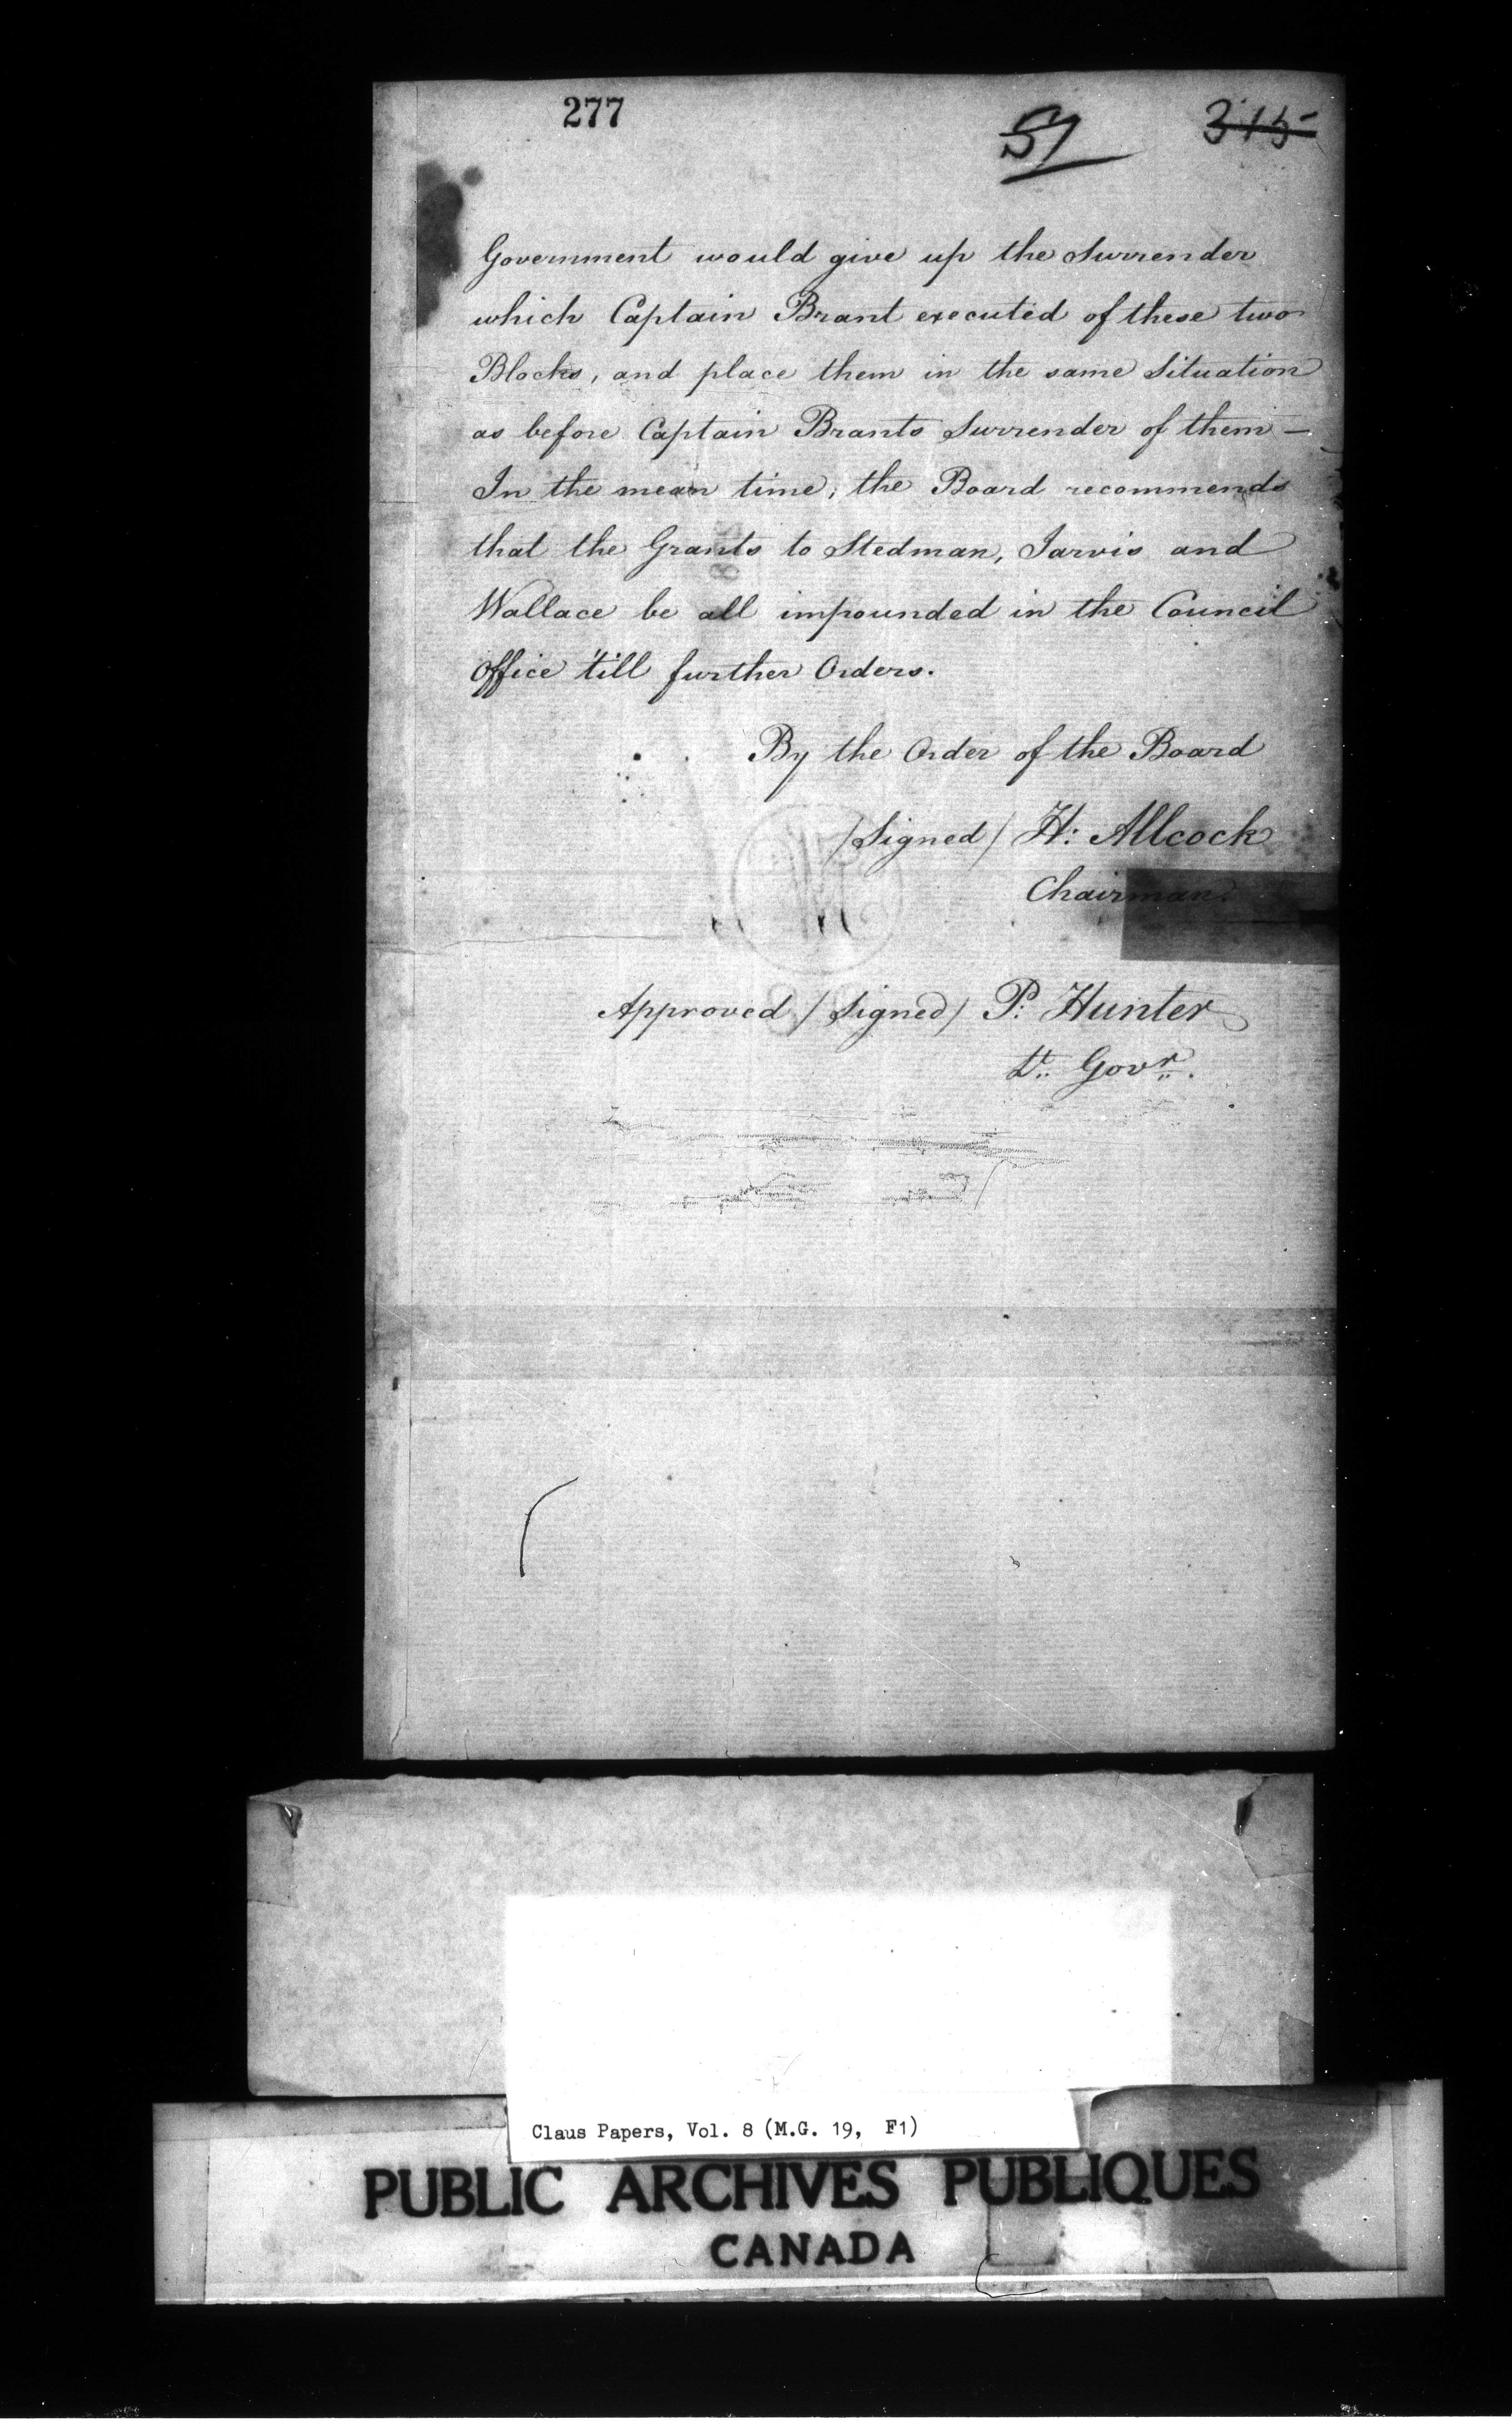 277
57
315
Government would give up the Surrender
which Captain Brant executed of these two
Blocks, and place them in the same Situation
as before Captain Brants Surrender of them —
In the mean time, the Board recommends
that the Grants to Stedman, Jarvis and
Wallace be all impounded in the Council
Office 'till further Orders.
By the Order of the Board
/Signed/ H: Allcock
Chairman.
Approved /Signed/ P: Hunter
Lt. Govr.
Claus Papers, Vol. 8 (M.G. 19, F1)
PUBLIC ARCHIVES PUBLIQUES
CANADA